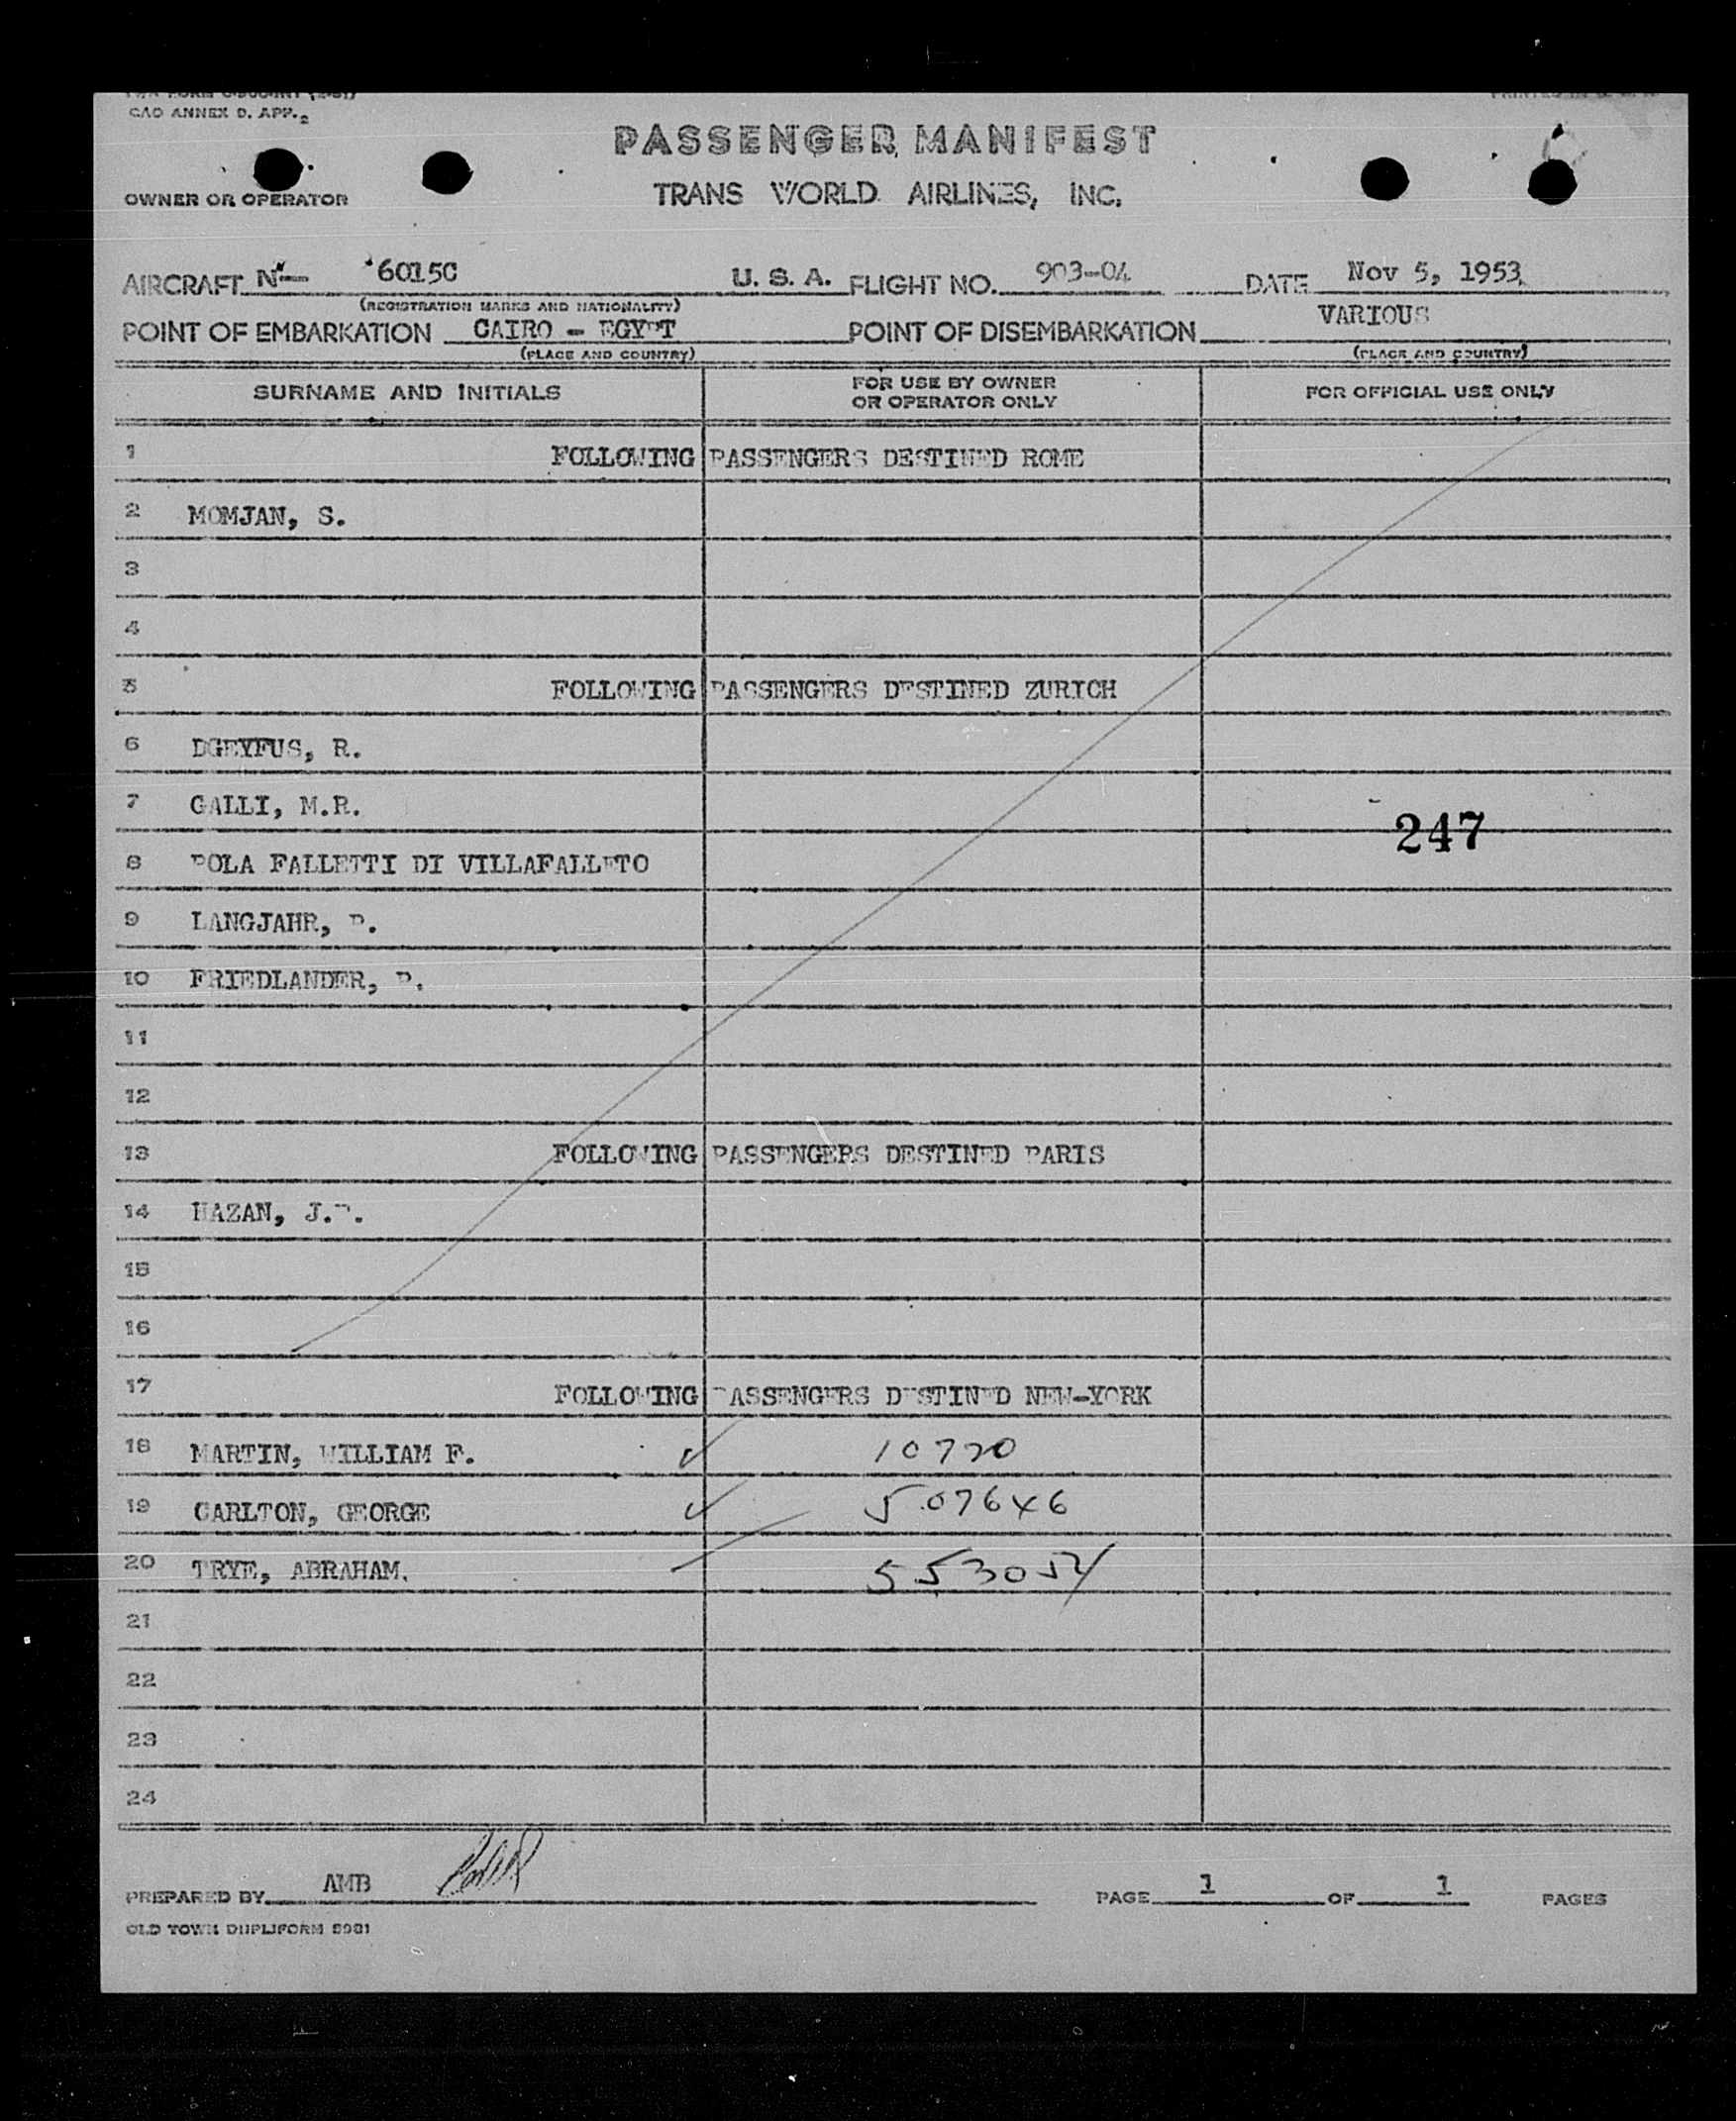 CAO ANNEX D. APP. 2
PASSENGER MANIFEST
OWNER OR OPERATOR
TRANS WORLD AIRLINES, INC.
AIRCRAFT N- 6015C U. S. A. FLIGHT NO. 903-04 DATE Nov 5, 1953
(REGISTRATION MARKS AND NATIONALITY)
POINT OF EMBARKATION CAIRO - EGYPT POINT OF DISEMBARKATION VARIOUS
(PLACE AND COUNTRY) (PLACE AND COUNTRY)
SURNAME AND INITIALS FOR USE BY OWNER OR OPERATOR ONLY FOR OFFICIAL USE ONLY
1 FOLLOWING PASSENGERS DESTINED ROME
2 MOMJAN, S.
3
4
5 FOLLOWING PASSENGERS DESTINED ZURICH
6 DGEYFUS, R.
7 GALLI, M.R.
247
8 POLA FALLETTI DI VILLAFALLETO
9 LANGJAHR,
10 FRIEDLANDER,
11
12
13 FOLLOWING PASSENGERS DESTINED PARIS
14 HAZAN, J.
15
16
17 FOLLOWING PASSENGERS DESTINED NEW-YORK
18 MARTIN, WILLIAM F. ✓ 10770
19 CARLTON, GEORGE ✓ 507646
20 TRYE, ABRAHAM. 553054
21
22
23
24
PREPARED BY AMB PAGE 1 OF 1 PAGES
OLD TOWN DUPLIFORM 8981